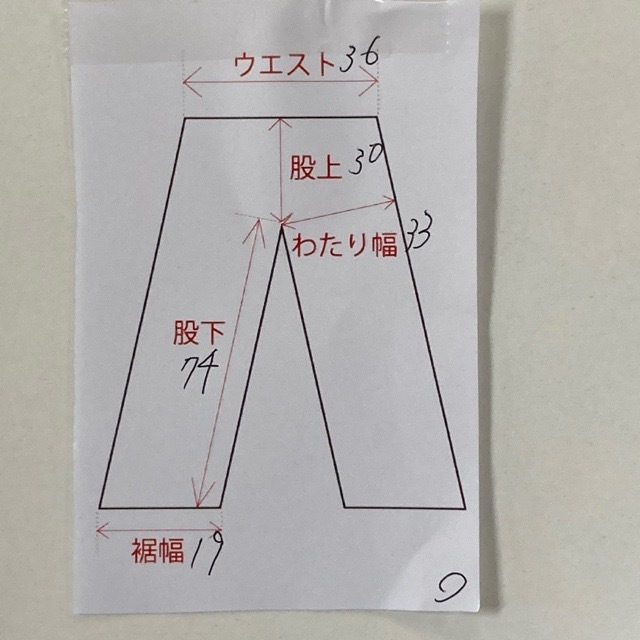 ウエスト36
股上30
わたり幅33
股下
74
裾幅19